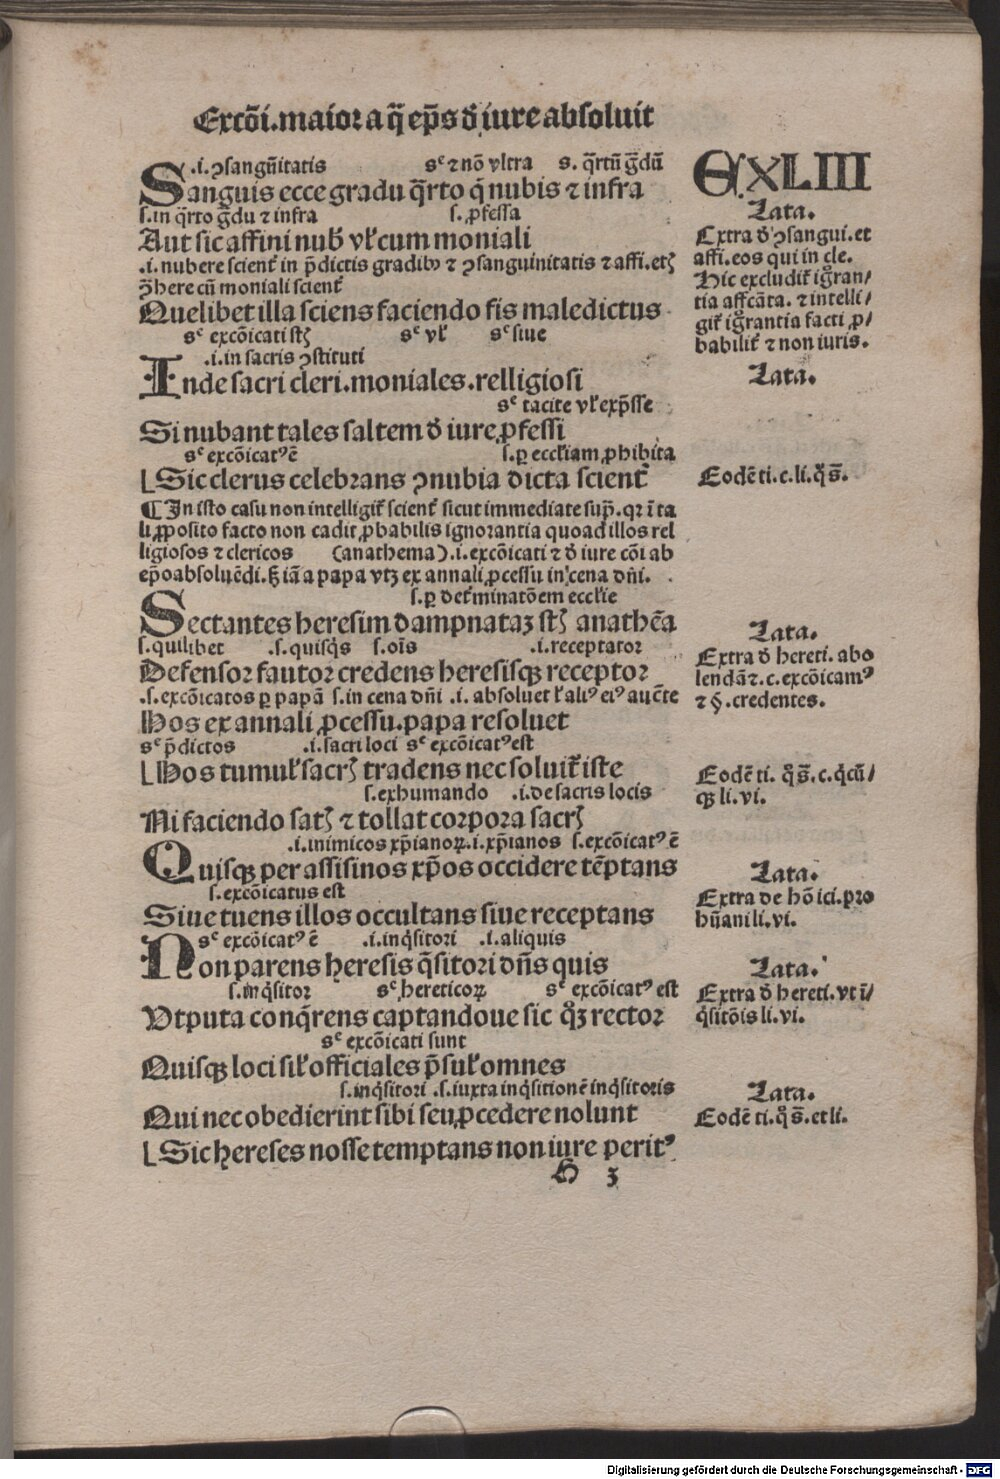 Excõi.maiora q̃ ep̃s ď iure absoluit
CXLIII
.i. ꝯsangũitatis sᶜ ⁊ nõ vltra s. q̃rtũ g̃dũ
Sanguis ecce gradu q̃rto q̃ nubis ⁊ infra
s.in q̃rto g̃du ⁊ infra s. ꝓfessa
Aut sic affini nub̃ vl̛ cum moniali
.i. nubere scient̃ in p̃dictis gradibꝰ ⁊ ꝯsanguinitatis ⁊ affi. etꝫ
ꝯ̃here cũ moniali scient̃
Quelibet illa sciens faciendo fis maledictus
sᶜ excõicati stꝫ sᶜ vl̛ sᶜ siue
.i. in sacris ꝯstituti
Inde sacri cleri.moniales.relligiosi
sᶜ tacite vl̛ exp̃sse
Si nubant tales saltem ď iure ꝓfessi
sᶜ excõicatꝰ ẽ s. ꝑ eccl̛iam ꝓhibita
Sic clerus celebrans ꝯnubia dicta scient̃
¶ In isto casu non intelligit̃ scient̃ sicut immediate sup̃. qꝛ ĩ ta
li ꝓposito facto non cadit ꝓbabilis ignorantia quoad illos rel
ligiosos ⁊ clericos (anathema).i. excõicati ⁊ ď iure cõi ab
ep̃o absoluẽdi. sꝫ iã a papa vtꝫ ex annali ꝓcessu in cena dñi.
s. ꝑ det̛minatõem eccl̛ie
Sectantes heresim dampnataꝫ stꝫ anathẽa
s. quilibet .s. quisq̃s s. oĩs .i. receptator
Defensor fautor credens heresisqꝫ receptor
.s. excõicatos ꝑ papã s. in cena dñi .i. absoluet l̛ aliꝰ eiꝰ auc̃te
Hos ex annali ꝓcessu.papa resoluet
sᶜ p̃dictos .i. sacri loci sᶜ excõicatꝰ est
Hos tumul̛ sacrꝫ tradens nec soluit̃ iste
s. exhumando .i. de sacris locis
Ni faciendo satꝫ ⁊ tollat corpora sacrꝫ
.i. inimicos xp̃ianoꝝ.i. xp̃ianos s. excõicatꝰ ẽ
Quisqꝫ per assisinos xp̃os occidere tẽptans
s. excõicatus est
Siue tuens illos occultans siue receptans
sᶜ excõicatꝰ ẽ .i. inq̃sitori .i. aliquis
Non parens heresis q̃sitori dñs quis
s. inq̃sitor sᶜ hereticoꝝ sᶜ excõicatꝰ est
Vtputa conq̃rens captandoue sic q̊ꝫ rector
sᶜ excõicati sunt
Quisqꝫ loci sil̛ officiales p̃sul̛ omnes
s. inq̃sitori .s. iuxta inq̃sitionẽ inq̃sitoris
Qui nec obedierint sibi seu ꝓcedere nolunt
Sic hereses nosse temptans non iure peritꝰ
H 3
Lata.
Extra ď ꝯsangui. et
affi. eos qui in cle.
Hic excludit̃ ig̃ran/
tia affcãta. ⁊ intelli/
git̃ ig̃rantia facti ꝓ/
babilit̃ ⁊ non iuris.
Lata.
Eodẽ ti. c. li. q̊ s̃.
Lata.
Extra ď hereti. abo
lendã ⁊. c. excõicamꝰ
⁊ §. credentes.
Eodẽ ti. q̊ s̃. c. q̃cũ/
qꝫ li. vi.
Lata.
Extra de hõici. pro
hũani li. vi.
Lata.
Extra ď hereti. vt ĩ/
q̃sitõis li. vi.
Lata.
Eodẽ ti. q̊ s̃. et li.
Digitalisierung gefördert durch die Deutsche Forschungsgemeinschaft - DFG